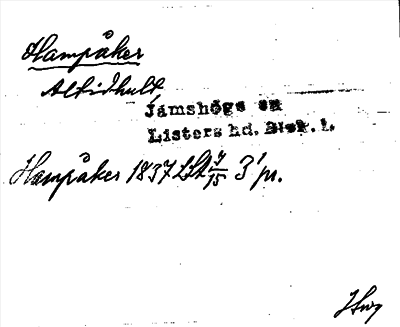 Hampåker
Altidhult
Jämshögs sn
Listers hd. Blek. l.
Hampåker 1837 LSt 3' pr.